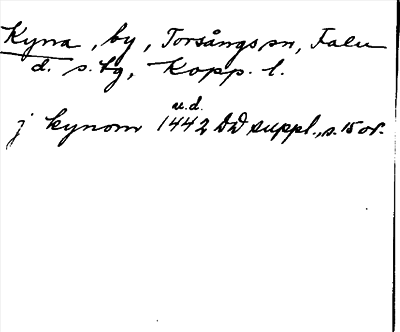 Kyna, by, Torsångs sn, Falu
d. s. tg, Kopp. l.
u.d.
j kynom 1442 DD suppl., s. 15 or.